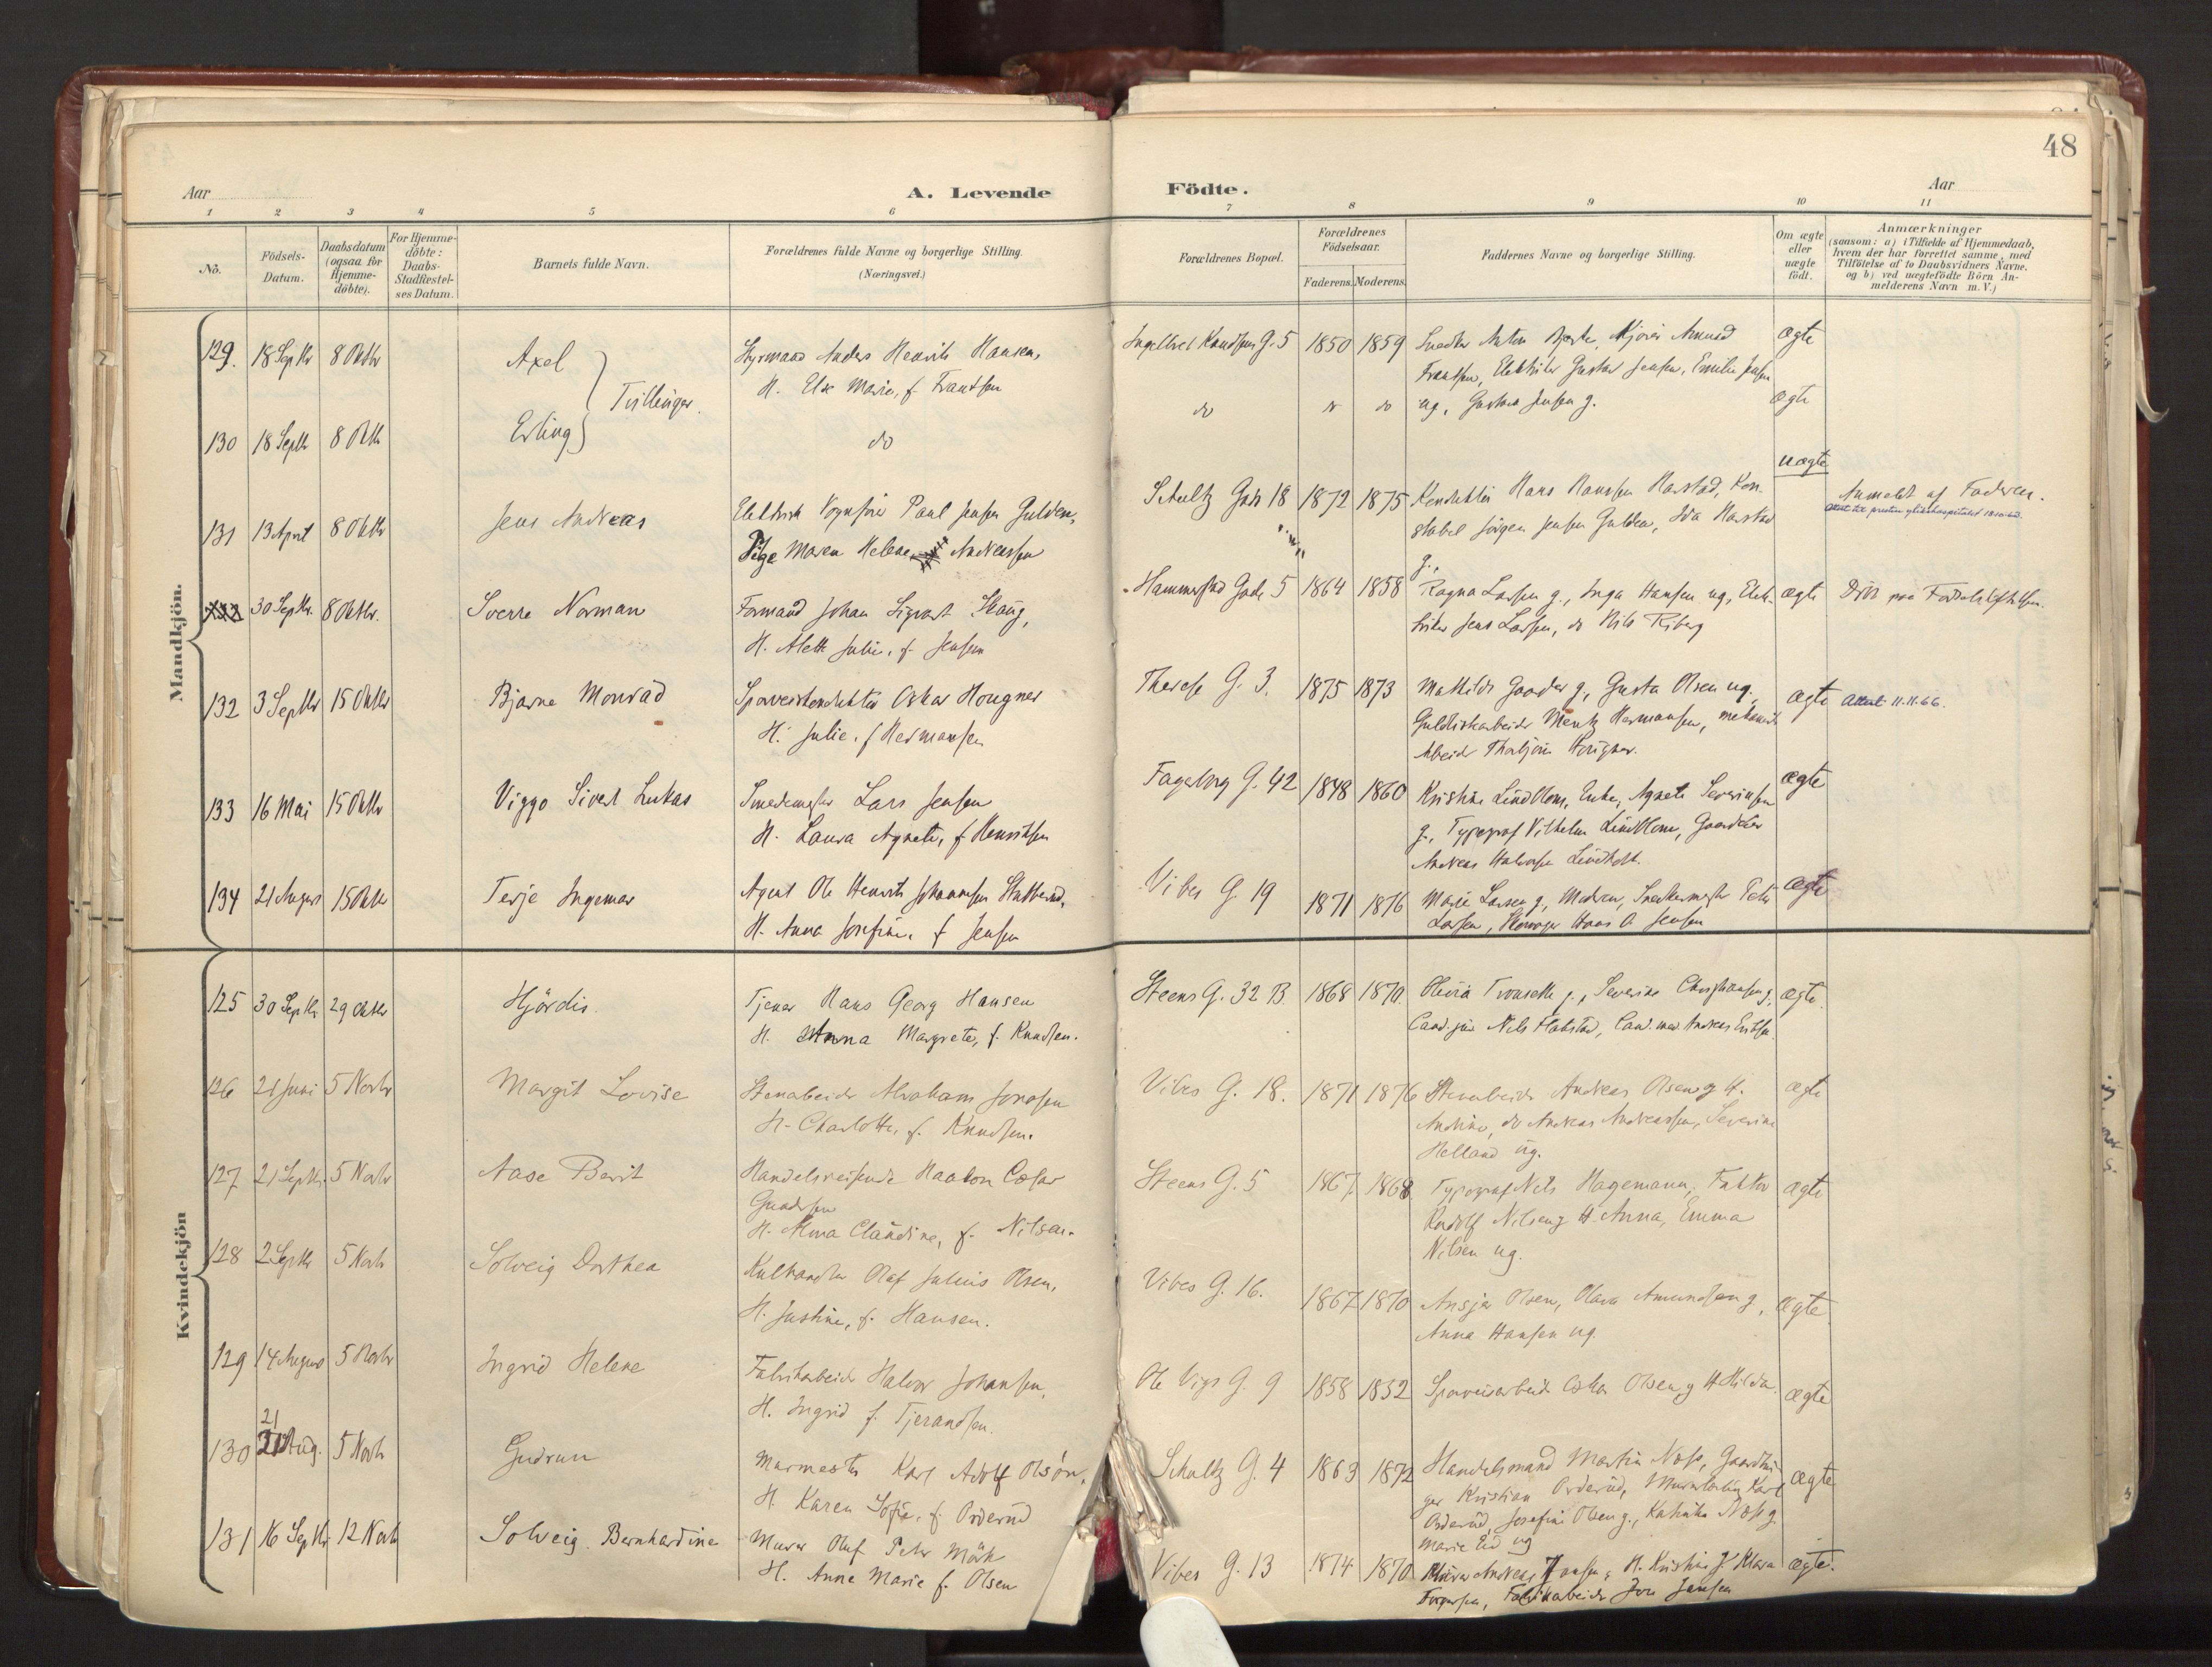 48
Aar
A. Levende
Födte.
Aar
1 2 3 4 5 6 7 8 9 10 11
No.
Födsels-Datum.
Daabsdatum (ogsaa for Hjemme-döbte).
For Hjemme-döbte: Daabs-Stadfæstel-ses Datum.
Barnets fulde Navn.
Forældrenes fulde Navne og borgerlige Stilling.
(Næringsvei.)
Forældrenes Bopæl.
Forældrenes Födselsaar.
Faderens. Moderens.
Faddernes Navne og borgerlige Stilling.
Om ægte eller uægte födt.
Anmærkninger
(saasom: a) i Tilfælde af Hjemmedaab,
hvem der har forrettet samme, med
Tilföielse af to Daabsvidners Navne,
og b) ved uægtefödte Börn An-
melderens Navn m. V.)
Mandkjön.
129. 18 Septbr 8 Oktbr Axel
Styrmand Anders Henrik Hansen,
H. Else Marie, f. Frantsen
Tvillinger.
G. 5 1850 1859
Frantsen, Elektriker Gustav Jensen, Emilie Jensen
ug, Jensen g.
ægte
130 18 Septbr 8 Oktbr Erling
do
do do do
ægte
131 13 April 8 Oktbr Jens Andreas
Elektrisk Vognfører Paul Jensen Gulden,
Pige Maren Helene Andreassen
Schultz Gade 18 1872 1875
Konduktør Hans Hanssen Harstad, Kon-
stabel Jörgen Jensen Gulden, Ida Harstad
g.,
uægte
Anmeldt af Faderen.
30 Septbr. 8 Oktbr. Sverre Norman
Formand Johan Sigvart Skaug,
H. Alette Julie, f. Jensen
Hammerstad Gade 5 1864 1858
Ragna Larsen g., Inga Hansen ug, Elek-
triker Jens Larsen, do Nils Riberg
ægte
132 3 Septbr 15 Oktbr Bjarne Monrad
Sporveiskonduktör Oskar Hougner
H. Julie, f Hermansen
Therese G. 3. 1875 1873
Mathilde Gaarder g, Gusta Olsen ug.
Guldlistarbeider Mentz Hermansen, mekanisk
Arbeider Thorbjörn Hougner.
ægte
attest 11.11.66.
133 16 Mai 15 Oktbr Viggo Sivert Lukas
Smedemester Lars Jensen
H. Laura Agnete, f Henriksen
Fagerborg G. 42 1848 1860
Kristine Lindblom, Enke, Agnete Severinsen
g., Typograf Vilhelm Lindblom, Gaardeier
Andreas Halvorsen Lindholt.
ægte
134 21 August 15 Oktbr Terje Ingemar
Agent Ole Henrik Johannesen
H. Anna Josefine, f Jensen
Vibes G. 19 1871 1876
Marie Larsen g, Moderen, Snekkermester Peter
Larsen, Hans A Jensen
ægte
Kvindekjön
125 30 Septbr. 29 Oktbr Hjördis
Tjener Hans Georg Hansen
H. Anna Margrete, f. Knudsen.
Steens G. 32 B. 1868 1870
g., Severine Christiansen g.
Cand. jur Nils Flatstad, Cand. med. Andreas
ægte.
126 21 Juni 5 Novbr Margit Lovise
Stenarbeider Abraham Jonasen
H. Charlotte, f. Knudsen.
Vibes G. 18. 1871 1876
Stenarbeider Andreas Olsen og H.
Andrine, do Andreas Andreassen, Severine
Helland ug.
ægte
127 21 Septbr. 5 Novbr Aase Berit
Handelsreisende Haakon Cæsar
Gundersen
H. Alma Claudine, f. Nilsen.
Steens G. 5 1867 1868
Typograf Nils Hagemann, Faktor
Rudolf Nilsen og H. Anna, Emma
Nilsen ug.
ægte
128 2 Septbr 5 Novbr Solveig Dorthea
Kulhandler Olaf Julius Olsen,
H. Justine, f. Hansen.
Vibes G. 16. 1867 1870
Ansgar Olsen, Olava Amundsen g,
Anna Hansen ug.
ægte
129 14 August 5 Novbr Ingrid Helene
Fabrikarbeider Halvor Johansen,
H. Ingrid f. Tjerandsen.
Ole Vigs G. 9 1858 1852
Sporveisarbeider Oskar Olsen og H Hilda.
ægte
130 21 Aug. 5 Novbr Gudrun
Murmester Karl Adolf Olsön,
H. Karen Sofie, f. Orderud
Schultz G. 4 1863 1872
Handelsmand Martin Næss, Gaardbru-
ger Kristian Orderud, Murerlærling Karl
Orderud, Josefine Olsen g., Kathinka Næss g.
Marie Eid ug
ægte
131 16 Septbr 12 Novbr Solveig Bernhardine
Murer Oluf Peter Mörk
H. Anne Marie f. Olsen
Vibes G. 13 1874 1870
Murer Andreas Hansen, H. Kristine, Klara
Fabrikarbeider Jens Jensen
ægte.